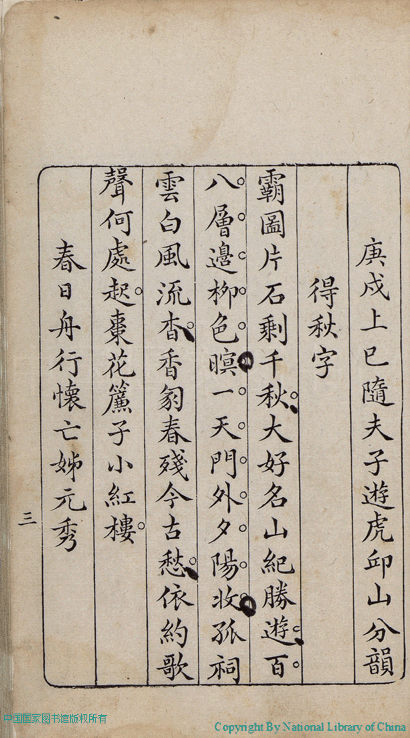 庚戌上巳隨夫子遊虎邱山分韻
得秋字
霸圖片石剩千秋大好名山紀勝遊百
八層邊栁色暝一天門外夕陽收孤祠
雲白風流杳香冢春殘今古愁依約歌
聲何處起棗花簾子小紅樓
春日舟行懷亡姊元秀
三
中国国家图书馆版权所有
Copyright By National Library of China